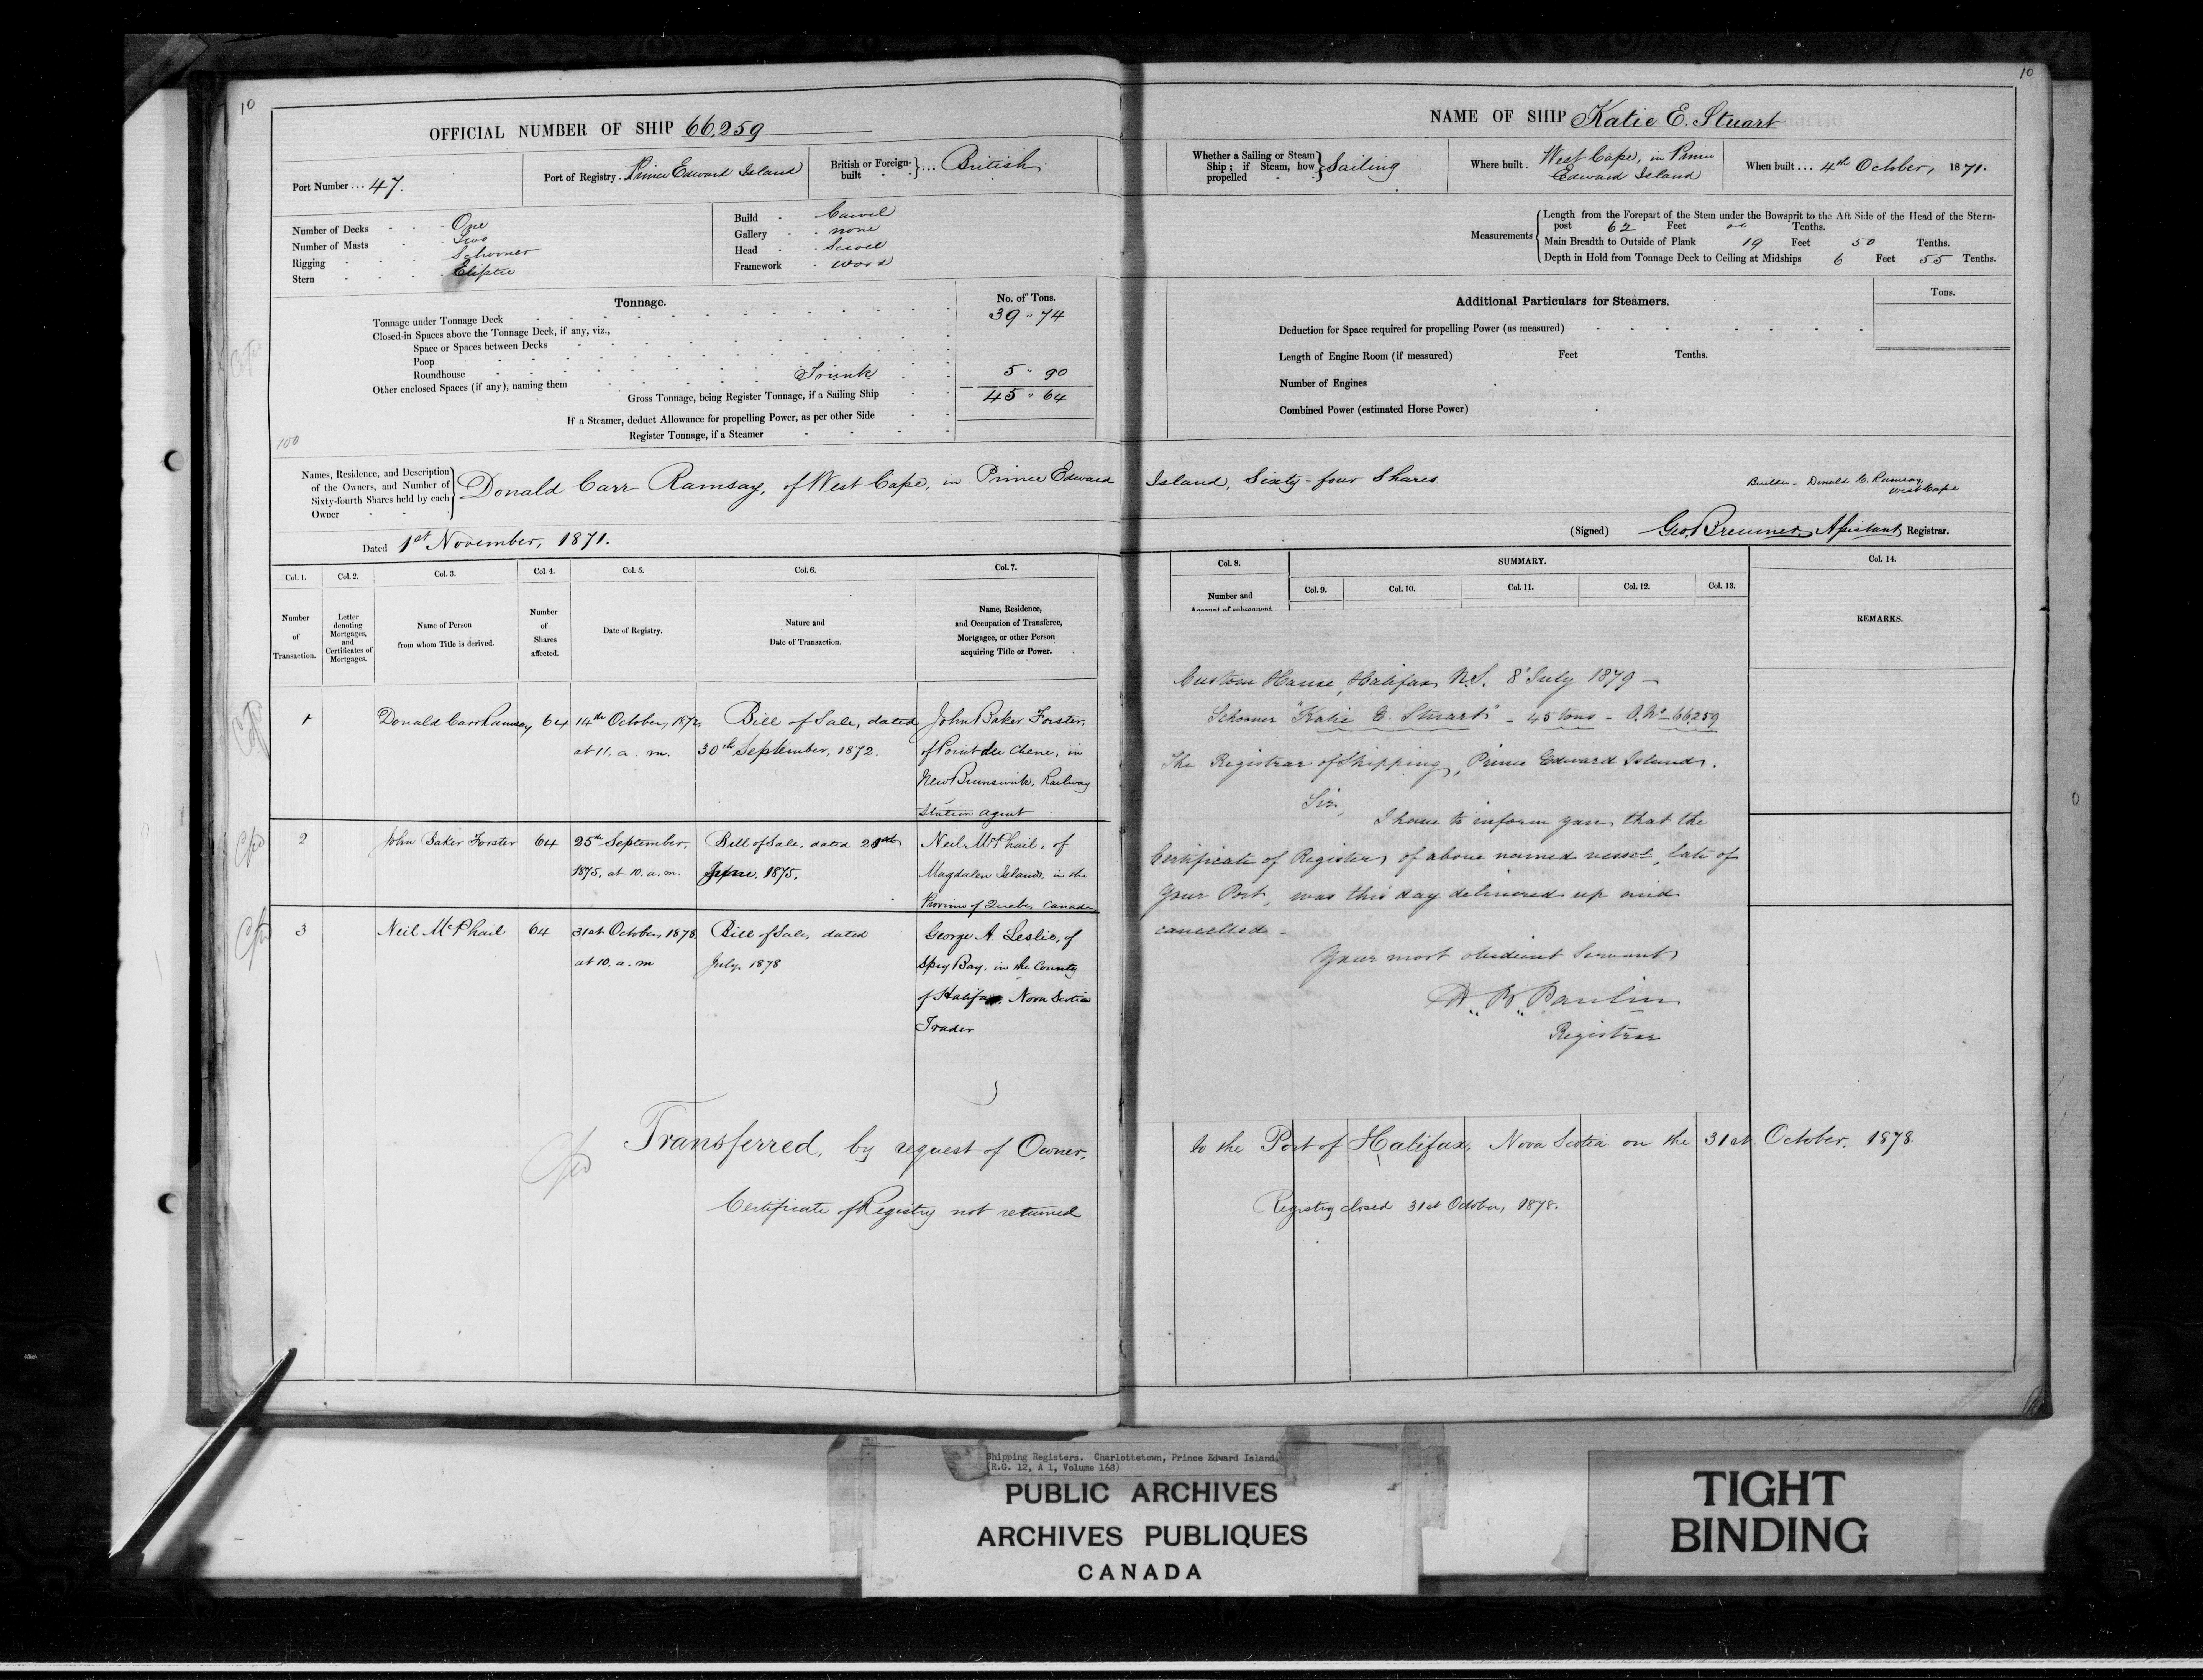 10
10
OFFICIAL NUMBER OF SHIP 66,259
Port Number ... 47.
Port of Registry. Prince Edward Island
British or Foreign-built ... British
Number of Decks - One
Number of Masts - Two
Rigging - Schooner
Stern - Eliptic
Build - Carvel
Gallery - none
Head - Scroll
Framework - wood
Tonnage.
No. of Tons.
Tonnage under Tonnage Deck 39 " 74
Closed-in Spaces above the Tonnage Deck, if any, viz.,
Space or Spaces between Decks
Poop
Roundhouse
Other enclosed Spaces (if any), naming them Trunk 5 " 90
Gross Tonnage, being Register Tonnage, if a Sailing Ship 45 " 64
If a Steamer, deduct Allowance for propelling Power, as per other Side
Register Tonnage, if a Steamer
100
NAME OF SHIP Katie E. Stuart
Whether a Sailing or Steam Ship; if Steam, how propelled Sailing
Where built. West Cape, in Prince Edward Island
When built ... 4th October, 1871.
Measurements
Length from the Forepart of the Stem under the Bowsprit to the Aft Side of the Head of the Stern-
post 62 Feet 00 Tenths.
Main Breadth to Outside of Plank 19 Feet 50 Tenths.
Depth in Hold from Tonnage Deck to Ceiling at Midships 6 Feet 55 Tenths.
Additional Particulars for Steamers.
Tons.
Deduction for Space required for propelling Power (as measured)
Length of Engine Room (if measured) Feet Tenths.
Number of Engines
Combined Power (estimated Horse Power)
Names, Residence, and Description
of the Owners, and Number of
Sixty-fourth Shares held by each
Owner
Donald Carr Ramsay, of West Cape, in Prince Edward Island, Sixty-four Shares.
Builder - Donald C. Ramsay
West Cape
Dated 1st November, 1871.
(Signed) Geo. Bremner Assistant Registrar.
Col. 1. Col. 2. Col. 3. Col. 4. Col. 5. Col. 6. Col. 7.
Number of Transaction.
Letter denoting Mortgages, and Certificates of Mortgages.
Name of Person from whom Title is derived.
Number of Shares affected.
Date of Registry.
Nature and Date of Transaction.
Name, Residence, and Occupation of Transferee, Mortgagee, or other Person acquiring Title or Power.
Col. 8. SUMMARY. Col. 14.
Number and
Account of subsequent
Col. 9. Col. 10. Col. 11. Col. 12. Col. 13.
REMARKS.
1 Donald Carr Ramsay 64 14th October, 1872, Bill of Sale, dated John Baker Forster,
at 11. a. m. 30th September, 1872. of Point du Chene, in
New Brunswick, Railway
Station agent
2 John Baker Forster 64 25th September, Bill of Sale, dated 21st Neil McPhail, of
1875. at 10. a. m. June, 1875. Magdalen Islands, in the
Province of Quebec, Canada
3 Neil McPhail 64 31st October, 1878. Bill of Sale, dated George A. Leslie, of
at 10. a. m July, 1878 Spry Bay, in the County
of Halifax, Nova Scotia
Trader
Custom House, Halifax, N.S. 8th July 1879 -
Schooner "Katie E. Stuart" - 45 tons - O. No - 66259
The Registrar of Shipping, Prince Edward Island.
Sir,
I have to inform you that the
Certificate of Register of above named vessel, late of
your Port, was this day delivered up and
cancelled -
Your most obedient Servant
Registrar
Transferred, by request of Owner, to the Port of Halifax, Nova Scotia on the 31st October, 1878.
Certificate of Registry not returned
Registry closed 31st October, 1878.
Shipping Registers. Charlottetown, Prince Edward Island.
(R.G. 12, A 1, Volume 168)
PUBLIC ARCHIVES
ARCHIVES PUBLIQUES
CANADA
TIGHT
BINDING